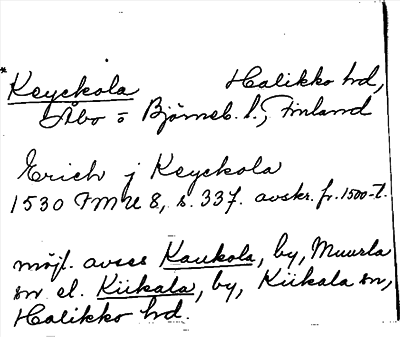 *Keyckola Halikko hd,
Åbo o Björneb. l., Finland
Erich j Keyckola
1530 FMU 8, s. 337. avskr. fr. 1500-t.
möjl. avses Kaukola, by, Muurla
sn el. Kiikala, by, Kiikala sn,
Halikko hd.